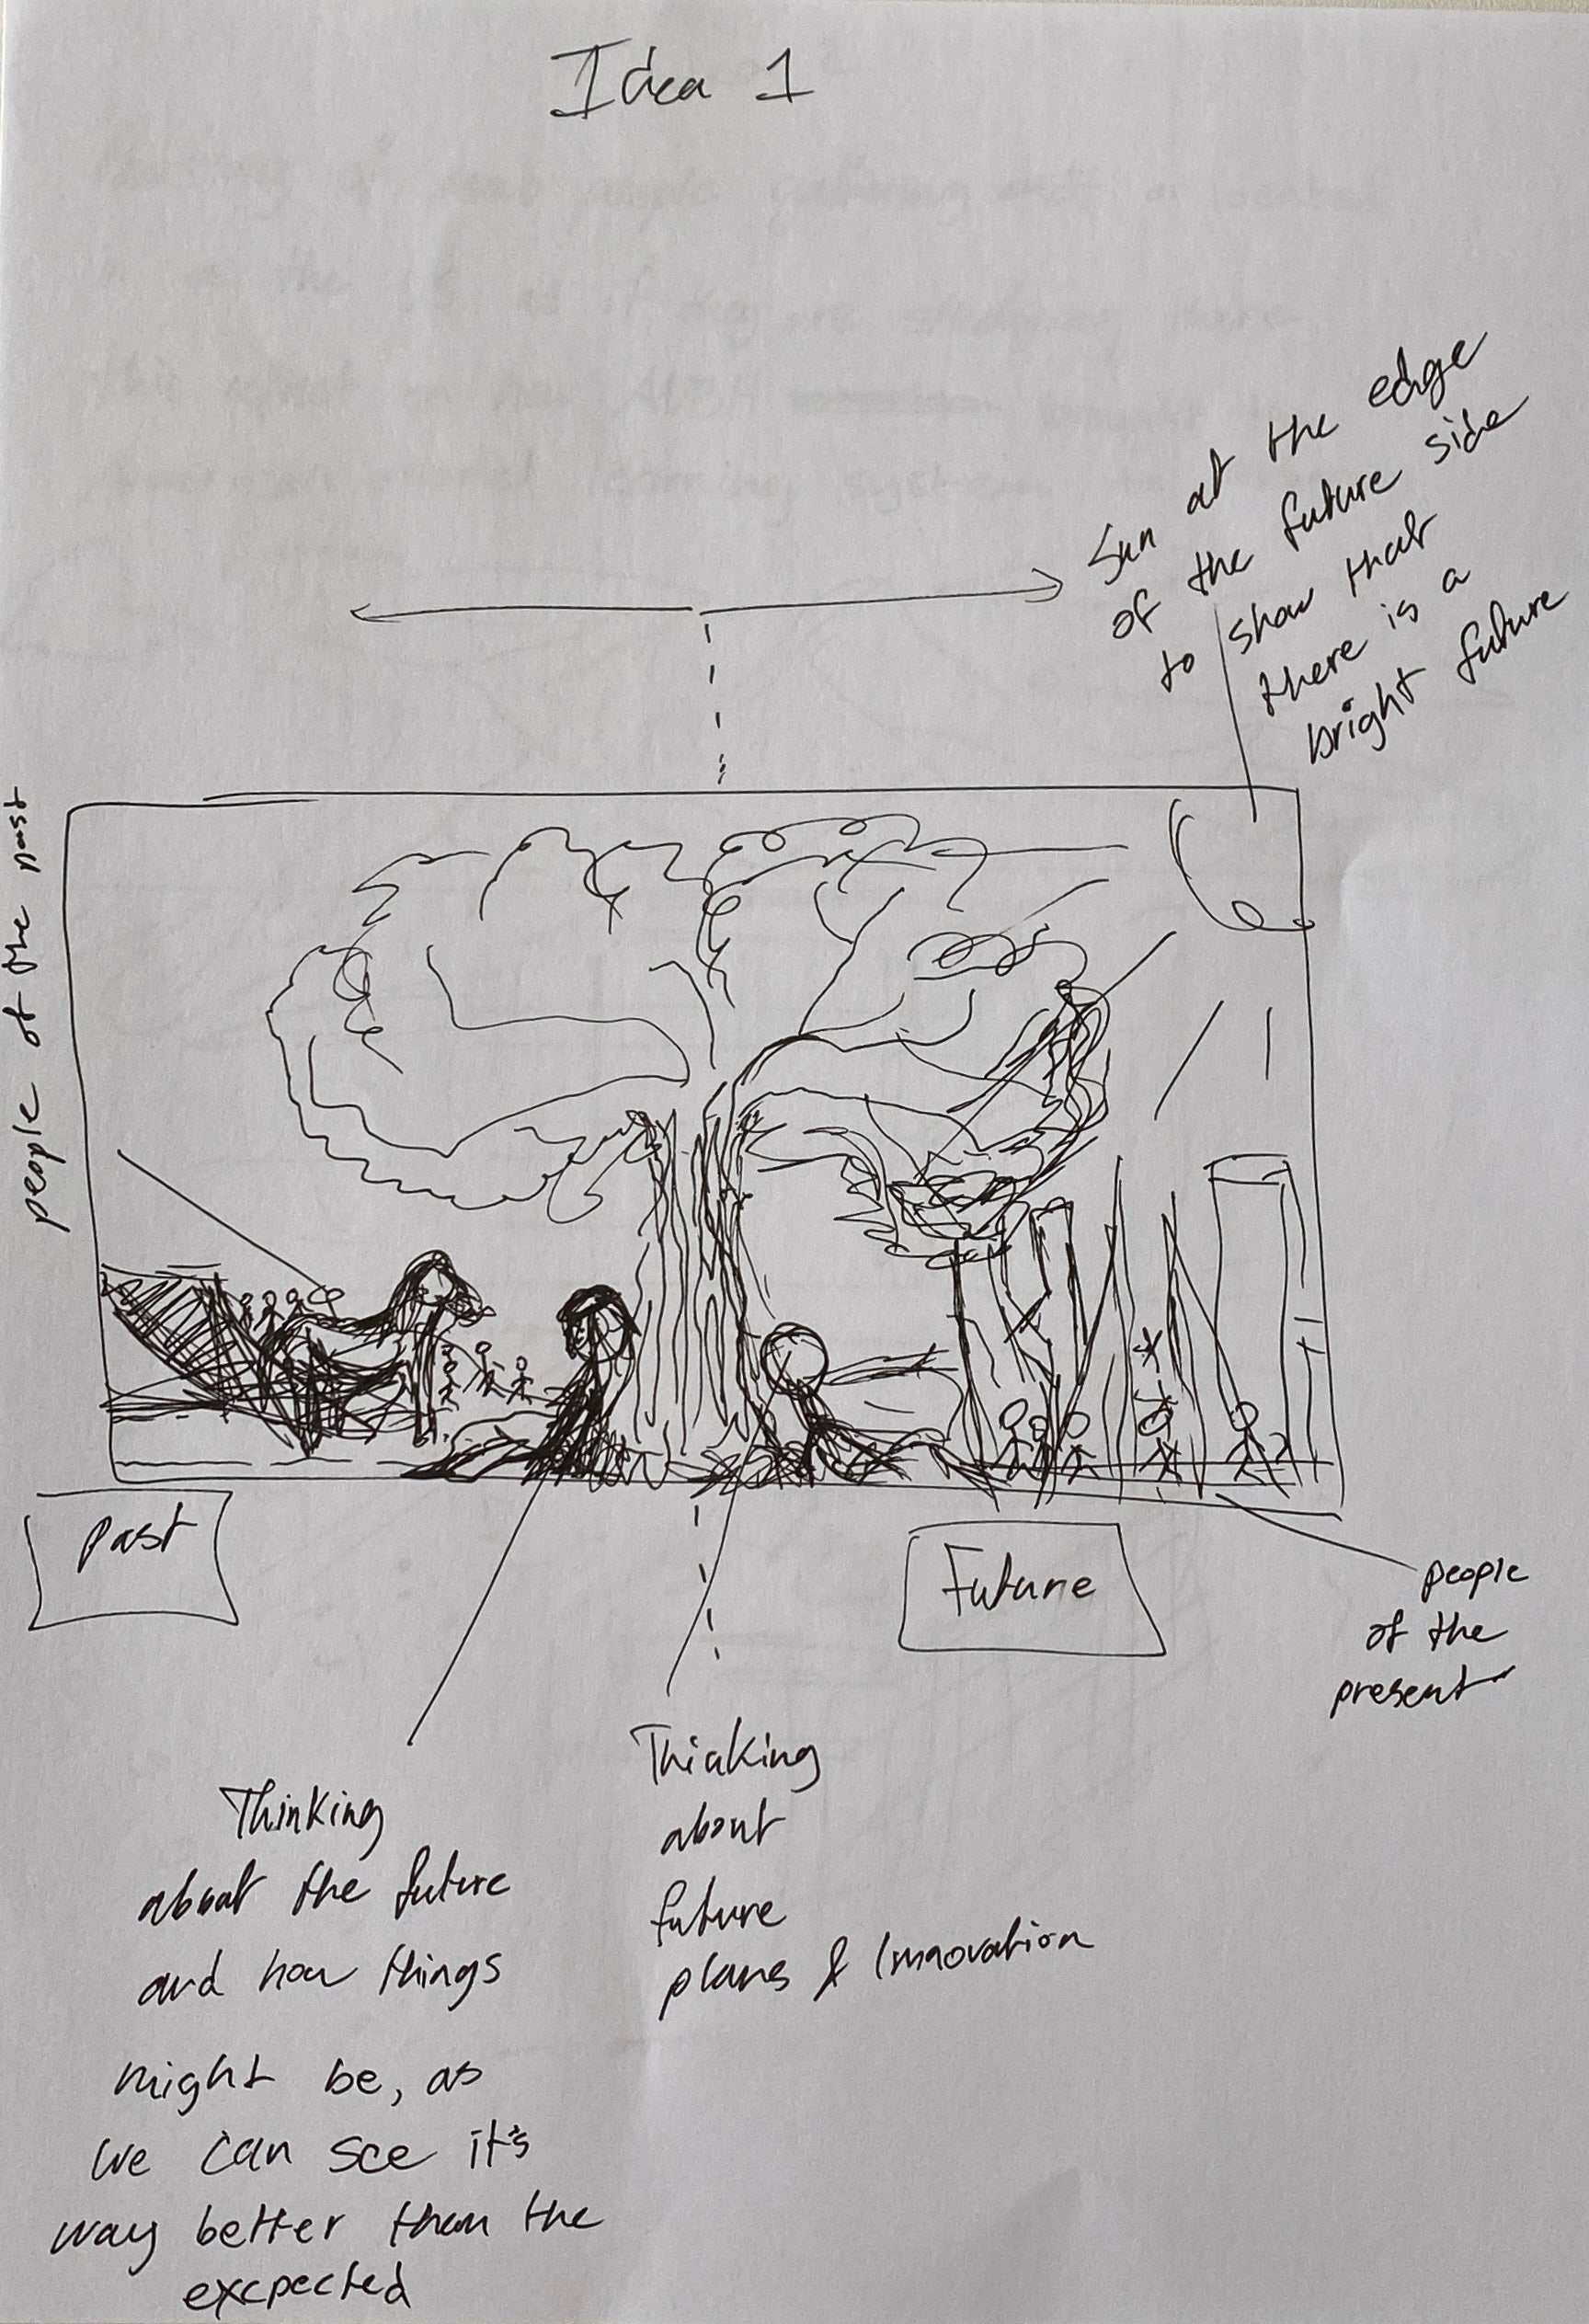 Idea 1
Sun at the edge
of the future side
to show that
there is a
bright future
people of the past
Past
Future
people
of the
present
Thinking
about the future
and how things
might be, as
we can see it's
way better than the
excpected
Thinking
about
future
plans & Innovation